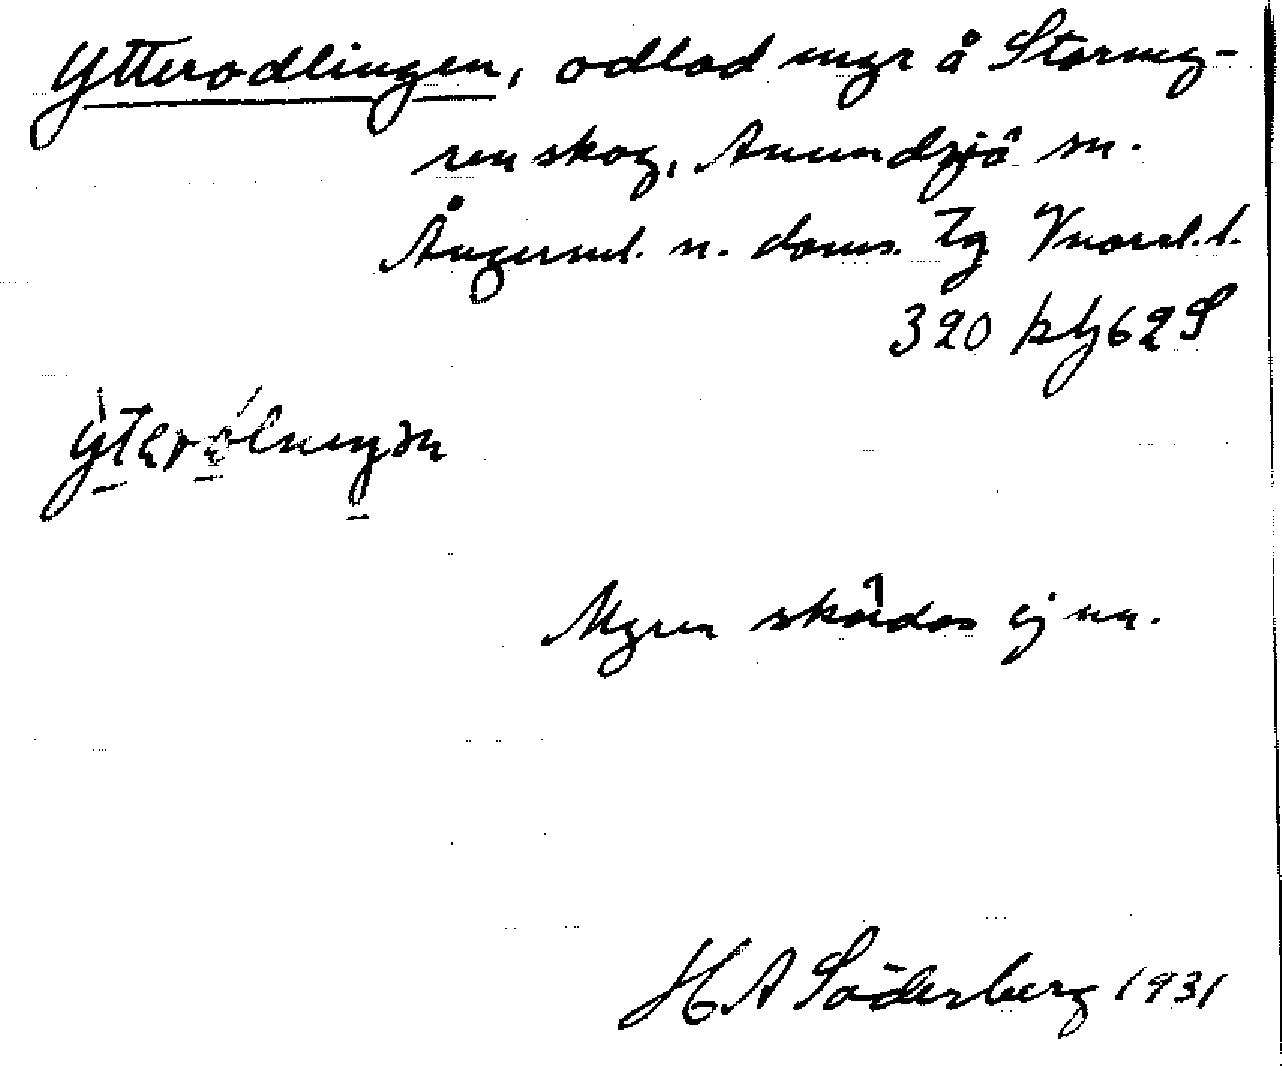 Ytterodlingen, odlad myr å Stormy-
ren skog, Anundsjö sn.
Ångerml. n. doms. Tg Vnorrl. l.
320 62 S
Myren skördas ej nu.
H A Söderberg 1931